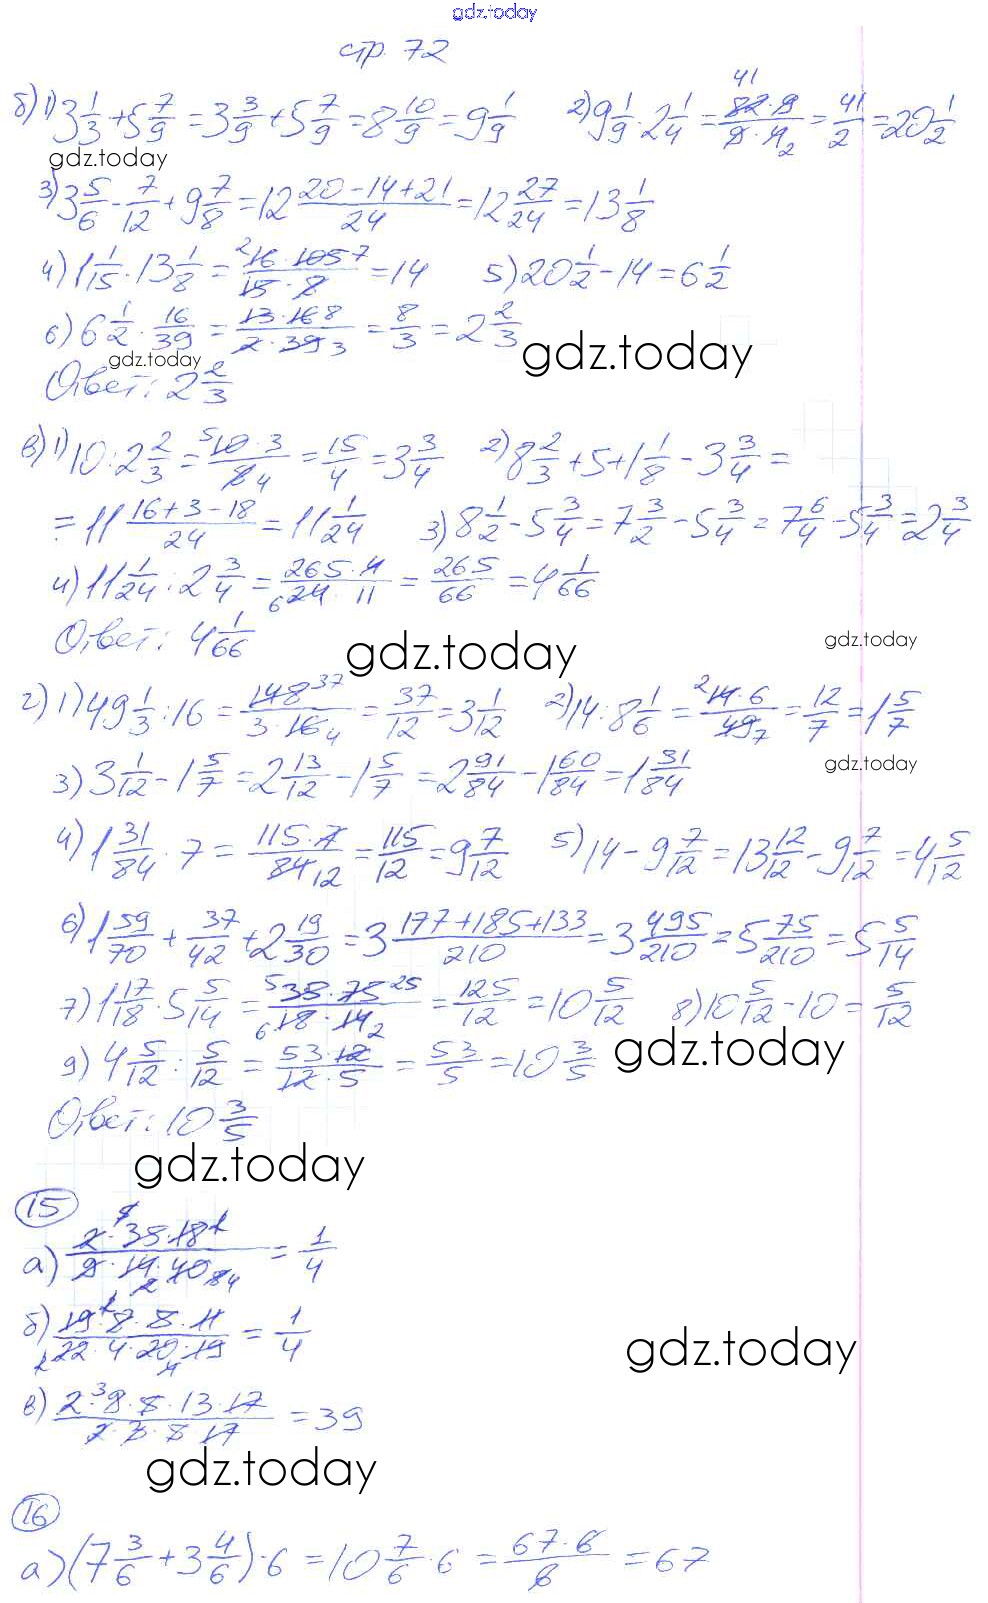 gdz.today
стр. 72
б) 1) 3 1/3 + 5 7/9 = 3 3/9 + 5 7/9 = 8 10/9 = 9 1/9 2) 9 1/9 · 2 1/4 = 82 · 9 / 9 · 4 = 41/2 = 20 1/2
gdz.today
3) 3 5/6 - 7/12 + 9 7/8 = 12 (20 - 14 + 21)/24 = 12 27/24 = 13 1/8
4) 1 1/15 · 13 1/8 = 16 · 105 / 15 · 8 = 14 5) 20 1/2 - 14 = 6 1/2
6) 6 1/2 · 16/39 = 13 · 16 8 / 2 · 39 3 = 8/3 = 2 2/3
gdz.today gdz.today
Ответ: 2 2/3
в) 1) 10 : 2 2/3 = 10 · 3 / 8 4 = 15/4 = 3 3/4 2) 8 2/3 + 5 + 1 1/8 - 3 3/4 =
= 11 (16 + 3 - 18)/24 = 11 1/24 3) 8 1/2 - 5 3/4 = 7 3/2 - 5 3/4 = 7 6/4 - 5 3/4 = 2 3/4
4) 11 1/24 : 2 3/4 = 265 · 4 / 24 · 11 = 265/66 = 4 1/66
Ответ: 4 1/66
gdz.today gdz.today
г) 1) 49 1/3 : 16 = 148 37 / 3 · 16 4 = 37/12 = 3 1/12 2) 14 : 8 1/6 = 2 14 · 6 / 49 7 = 12/7 = 1 5/7
3) 3 1/12 - 1 5/7 = 2 13/12 - 1 5/7 = 2 91/84 - 1 60/84 = 1 31/84
gdz.today
4) 1 31/84 · 7 = 115 · 7 / 84 12 = 115/12 = 9 7/12 5) 14 - 9 7/12 = 13 12/12 - 9 7/12 = 4 5/12
6) 1 59/70 + 37/42 + 2 19/30 = 3 (177 + 185 + 133)/210 = 3 495/210 = 5 75/210 = 5 5/14
7) 1 17/18 · 5 5/14 = 5 35 · 75 25 / 6 18 · 14 2 = 125/12 = 10 5/12 8) 10 5/12 - 10 = 5/12
9) 4 5/12 : 5/12 = 53 · 12 / 12 · 5 = 53/5 = 10 3/5
gdz.today
Ответ: 10 3/5
gdz.today
15
а) 2 · 35 · 18 / 9 · 14 · 40 = 1/4
б) 19 · 8 · 5 · 11 / 22 · 4 · 20 · 19 = 1/4
gdz.today
в) 2 · 9 · 8 · 13 · 17 / 2 · 3 · 8 · 17 = 39
gdz.today
16
а) (7 3/6 + 3 4/6) · 6 = 10 7/6 · 6 = 67 · 6 / 6 = 67